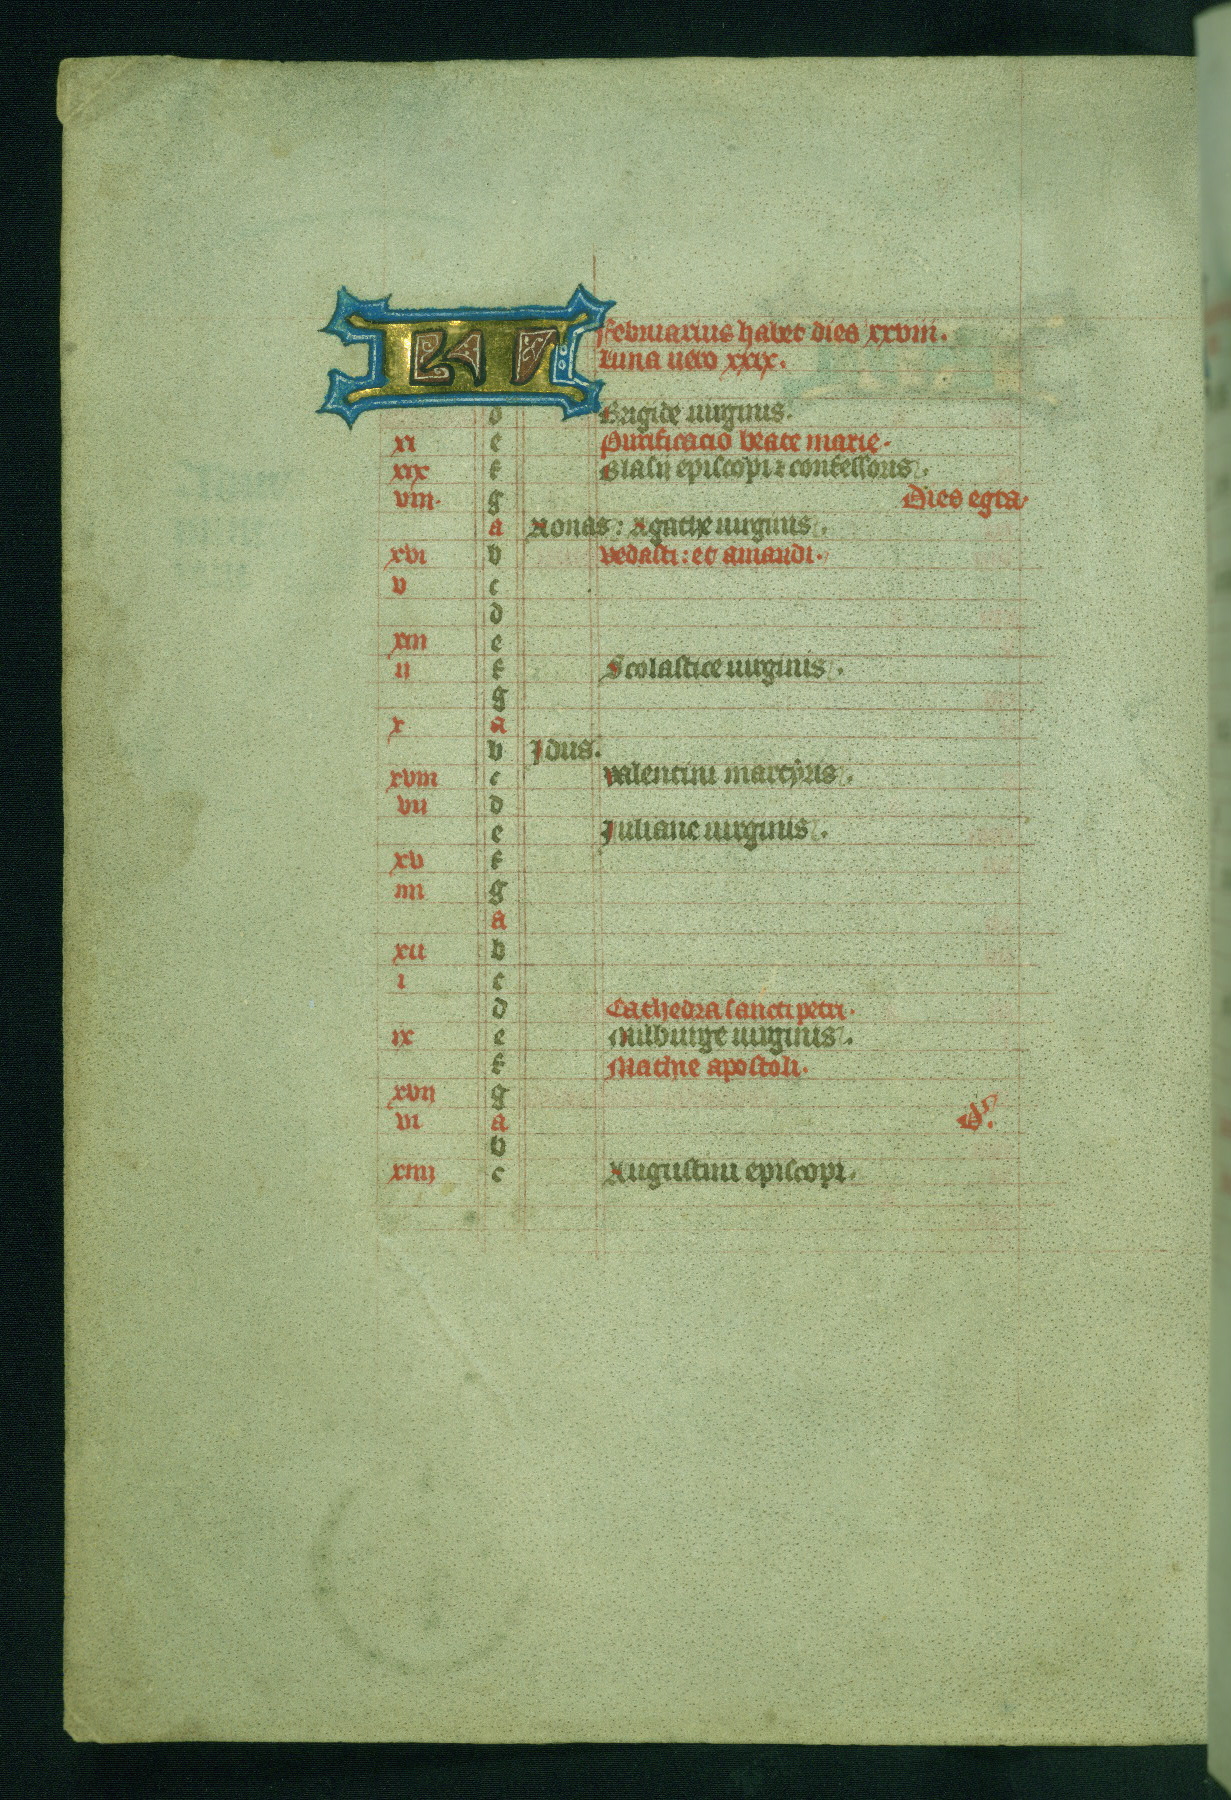 KL Februarius habet dies xxviii.
Luna uero xxix.
d Brigide uirginis.
xi e Purificatio beate marie.
xix f Blasii episcopi ⁊ confessoris.
viii. g Dies egra.
a Nonas: Agathe uirginis.
xvi b Vedasti: et amandi.
v c
d
xiii e
ii f Scolastice uirginis.
g
x a
b Idus.
xviii c Valentini martyris.
vii d
e Iuliane uirginis.
xv f
iiii g
a
xii b
i c
d Cathedra sancti petri.
ix e Milburge uirginis.
f Mathie apostoli.
xvii g
vi a d.
b
xiiii c Augustini episcopi.